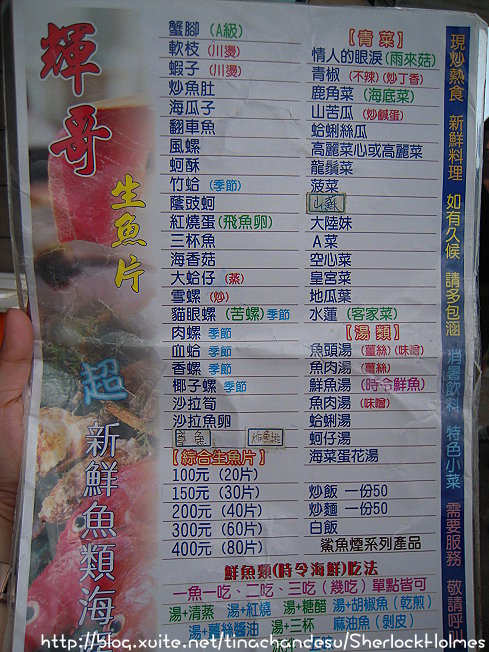 輝哥
生魚片
超
新鮮魚類海
蟹腳 (A級)
軟枝 (川燙)
蝦子 (川燙)
炒魚肚
海瓜子
翻車魚
風螺
蚵酥
竹蛤 季節
蔭豉蚵
紅燒蛋(飛魚卵)
三杯魚
海香菇
大蛤仔 (蒸)
雪螺 (炒)
貓眼螺 (苦螺) 季節
肉螺 季節
血蛤 季節
香螺 季節
椰子螺 季節
沙拉筍
沙拉魚卵
【綜合生魚片】
100元 (20片)
150元 (30片)
200元 (40片)
300元 (60片)
400元 (80片)
【青菜】
情人的眼淚(雨來菇)
青椒 (不辣) (炒丁香)
鹿角菜 (海底菜)
山苦瓜 (炒鹹蛋)
蛤蜊絲瓜
高麗菜心或高麗菜
龍鬚菜
菠菜
山蘇
大陸妹
A菜
空心菜
皇宮菜
地瓜葉
水蓮 (客家菜)
【湯類】
魚頭湯 (薑絲) (味噌)
魚肉湯 (薑絲)
鮮魚湯 (時令鮮魚)
魚肉湯 (味噌)
蛤蜊湯
蚵仔湯
海菜蛋花湯
炒飯 一份50
炒麵 一份50
白飯
鯊魚煙系列產品
鮮魚類(時令海鮮)吃法
一魚一吃、二吃、三吃(幾吃)單點皆可
湯+清蒸 湯+紅燒 湯+糖醋 湯+胡椒魚(乾煎)
湯+薑絲醬油 湯+三杯 麻油魚(剝皮)
現炒熱食 新鮮料理 如有久候 請多包涵 消暑飲料 特色小菜 需要服務 敬請呼
http://blog.xuite.net/tinachandesu/SherlockHolmes